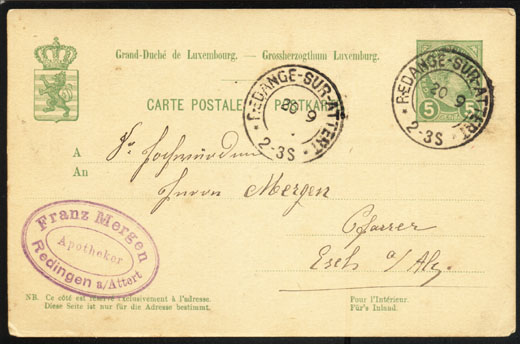 Grand-Duché de Luxembourg. — Grossherzogthum Luxemburg.
CARTE POSTALE. — POSTKARTE.
REDANGE-SUR-ATTERT
20 9
2-3S
REDANGE-SUR-ATTERT
20 9
2-3S
5 5
A
An
Sr Hochwürden
Herrn Mergen
Pfarrer
Esch a/Alz.
Franz Mergen
Apotheker
Redingen s/Attert
NB. Ce côté est réservé exclusivement à l'adresse.
Diese Seite ist nur für die Adresse bestimmt.
Pour l'Intérieur.
Für's Inland.